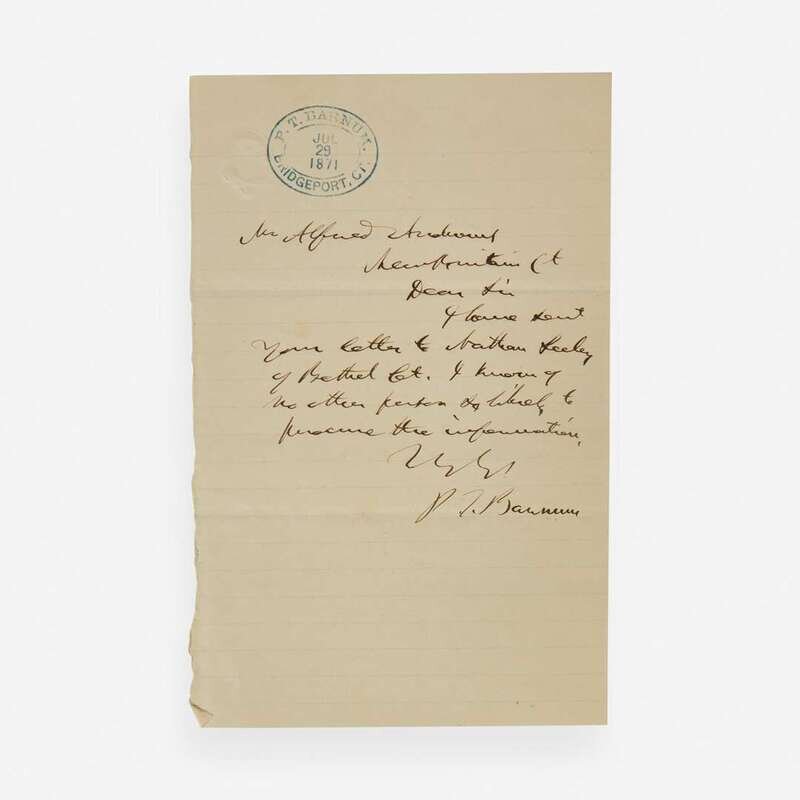 P. T. BARNUM.
JUL
29
1871
BRIDGEPORT, CT.
Mr Alfred Andrews
New Britain Ct
Dear Sir
I have sent
Your letter to Nathan Seeley
of Bethel Ct. I know of
no other person so likely to
procure the information.
P. T. Barnum